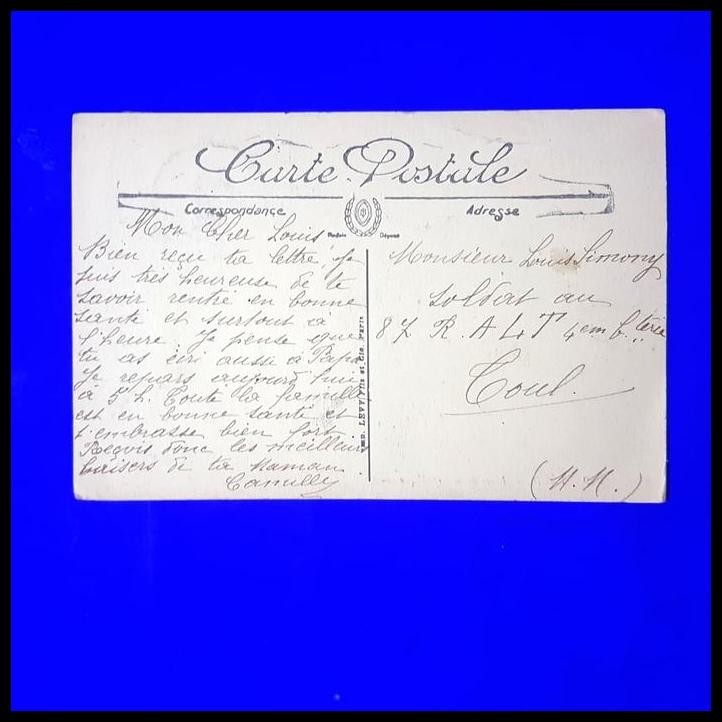 Carte Postale
Correspondance
Adresse
Mon Cher Louis
Bien reçu ta lettre je
suis très heureuse de te
savoir rentré en bonne
santé et surtout à
l'heure. Je pense que
tu as écri aussi à Papa
Je repars aujourd'hui
à 5 h. Toute la famille
est en bonne santé et
t'embrasse bien fort
Reçois donc les meilleurs
baisers de ta Maman
Camille
IMP. LEVY Fils et Cie, Paris
Monsieur Louis Simony
soldat au
87 R A L T 4em b.terie
Toul.
(M. M.)